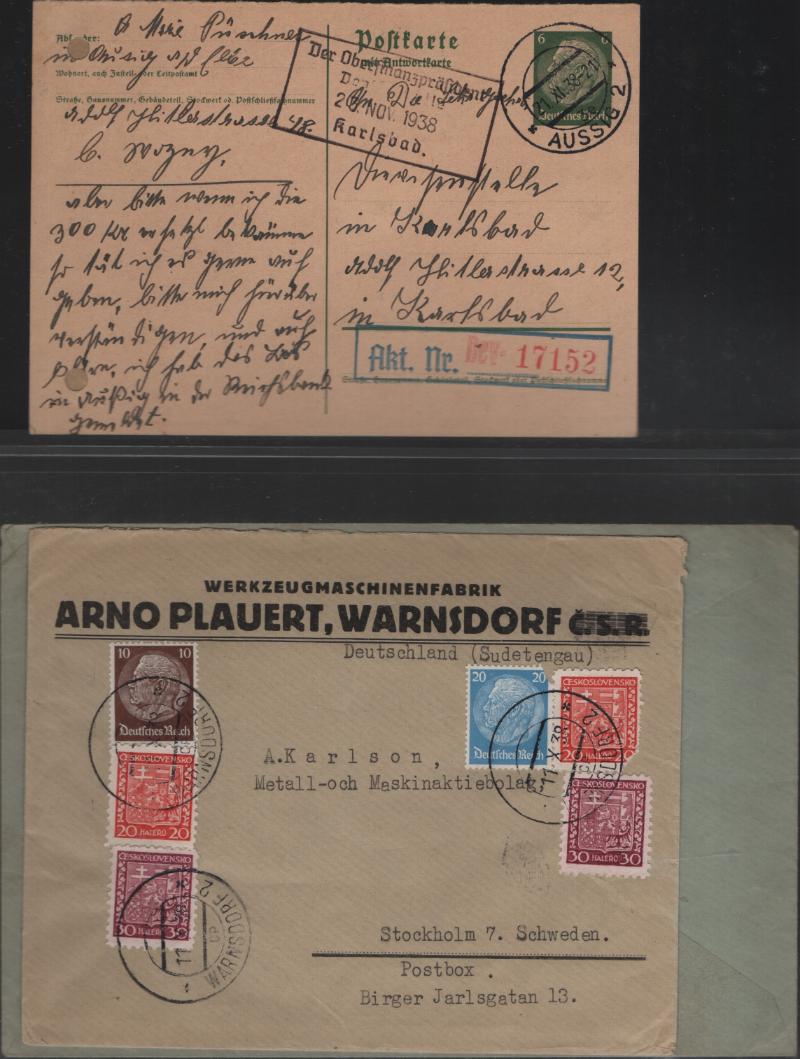 Absender:
Marie Püschner
in Aussig a/d Elbe
Wohnort, auch Zustell- oder Leitpostamt
Straße, Hausnummer, Gebäudeteil, Stockwerk od. Postschließfachnummer
Adolf Hitlerstrasse 48.
b. Wozny,
aber bitte wenn ich die
300 Kr ersetzt bekäme
so tät ich es gerne auf
geben, bitte mich hierüber
verständigen, und auf
ich hab das
in Außig in der Reichsbank
gemeldet.
Postkarte
mit Antwortkarte
Der Oberfinanzpräsident
NOV. 1938
Karlsbad.
6 6
Deutsches Reich
21.XI.38-21
* AUSSIG 2 *
Devisenstelle
in Karlsbad
Adolf Hitlerstrasse 12,
in Karlsbad
Akt. Nr. Dev- 17152
WERKZEUGMASCHINENFABRIK
ARNO PLAUERT, WARNSDORF Č.S.R.
Deutschland (Sudetengau)
10 10
Deutsches Reich
ČESKOSLOVENSKO
20 HALÉŘŮ 20
ČESKOSLOVENSKO
30 HALÉŘŮ 30
WARNSDORF 2
20 20
Deutsches Reich
ČESKOSLOVENSKO
20 HALÉŘŮ 2
ČESKOSLOVENSKO
30 HALÉŘŮ 30
11.X.38
A.Karlson,
Metall-och Maskinaktiebolag
Stockholm 7. Schweden.
Postbox.
Birger Jarlsgatan 13.